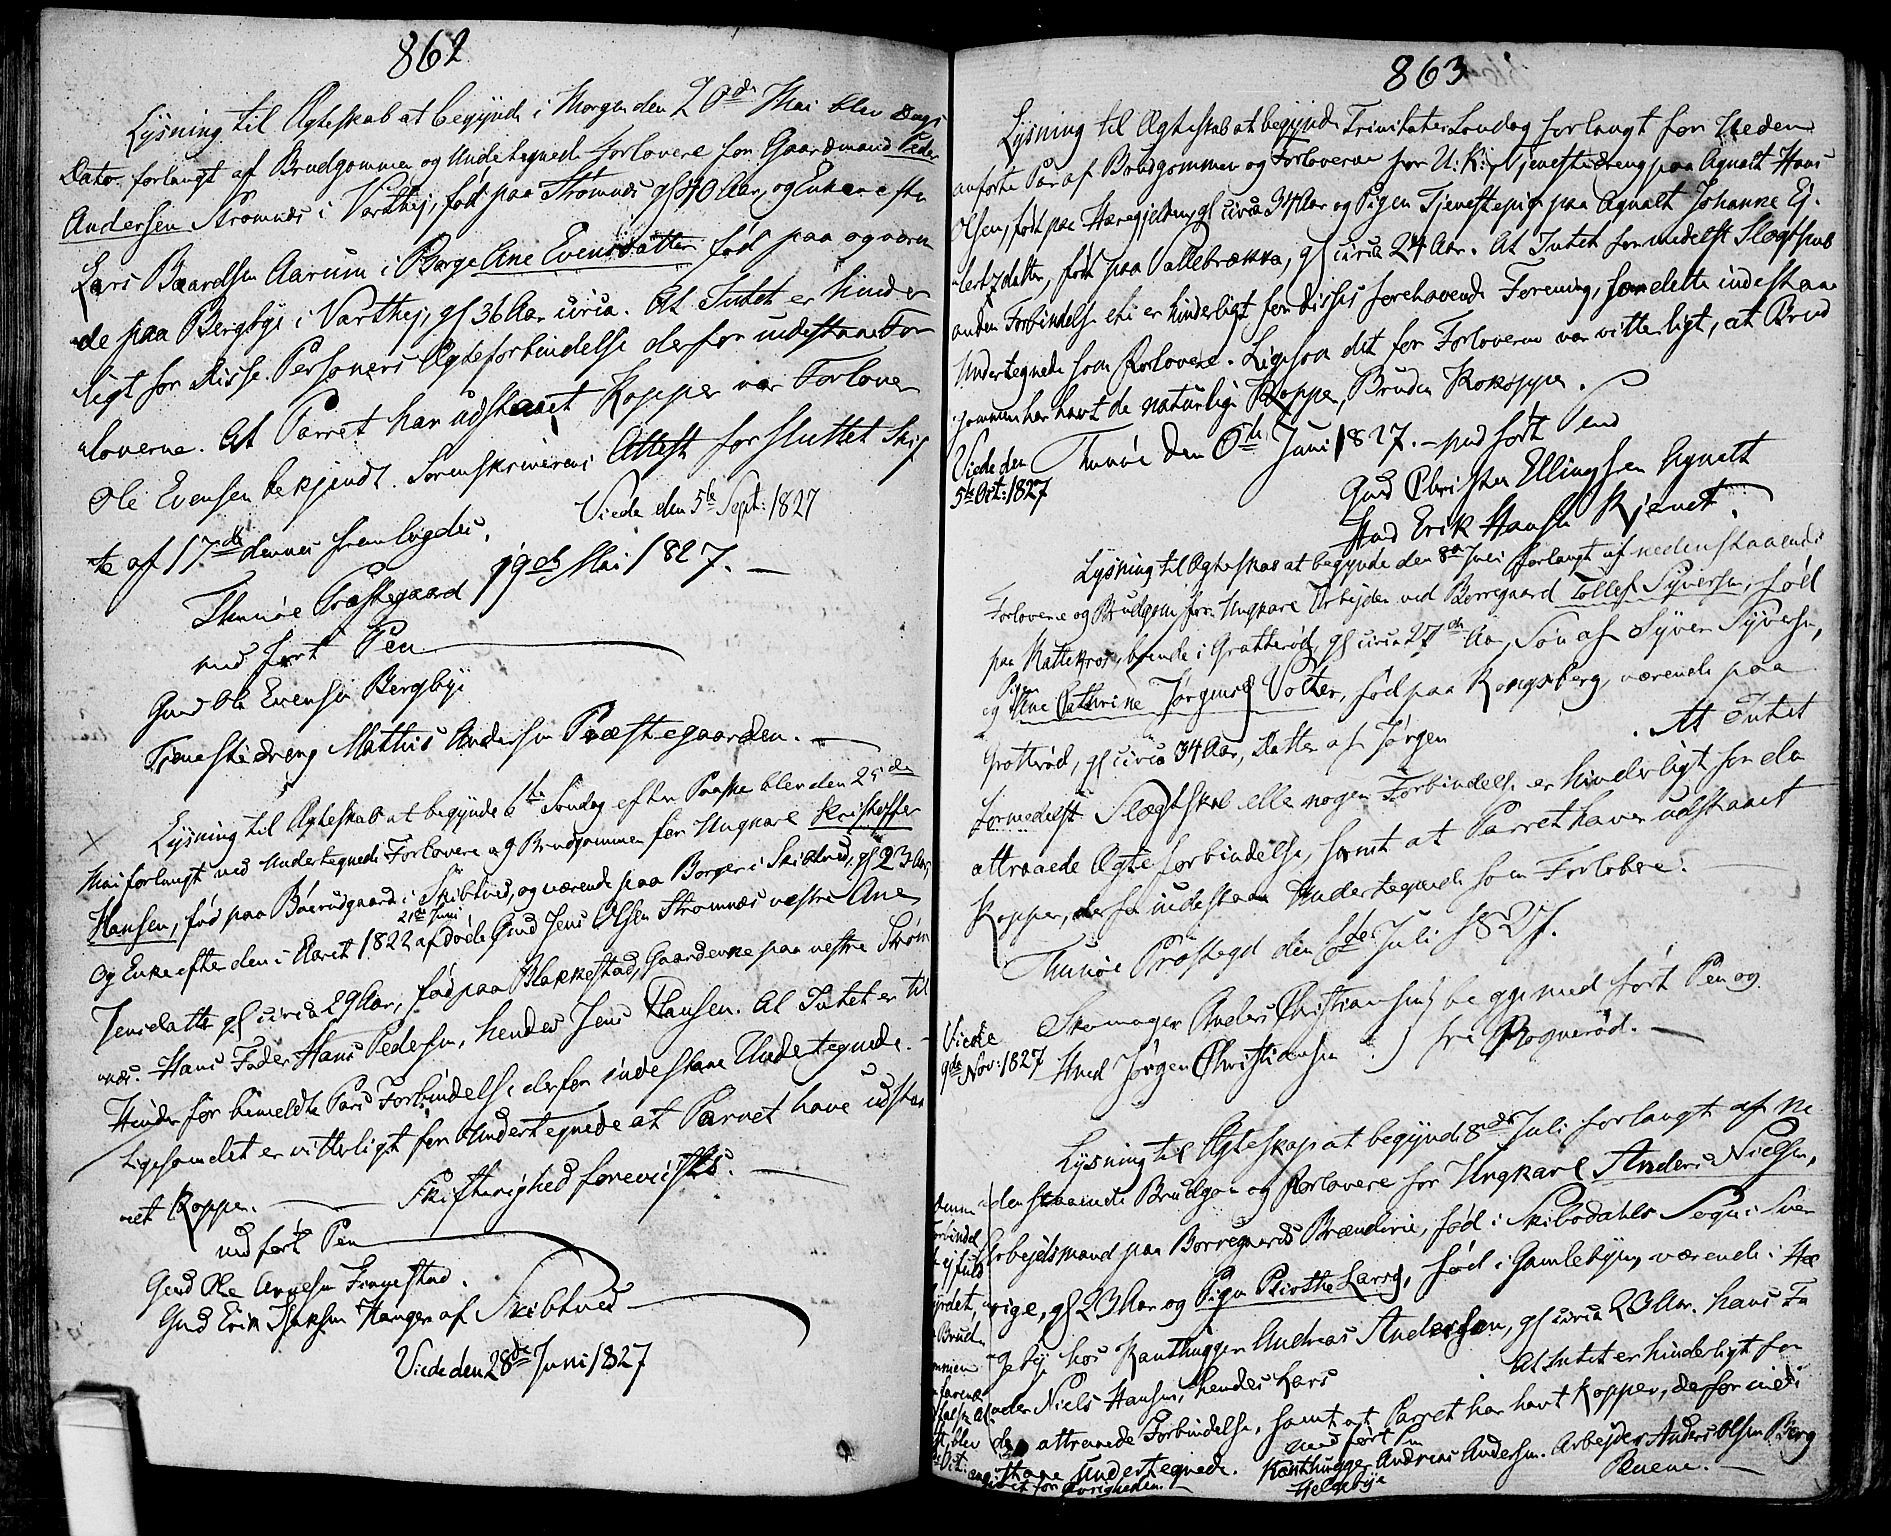 862
Lysning til Ægteskab at begynde i Morgen den 20de Mai blev Dags
Dato forlangt af Brudgommen og Undertegnede Forlovere for Gaardmand Peder
Andersen Strømnes i Vartheg, fød paa Strømnes gl 40 Aar, og Enken efter
Lars Baardsen Aarum i Borge Ane Evensdatter fød paa og væren
de paa Bergbye i Vartheg, gl 36 Aar circa. At Intet er hinder
ligt for disse Personers Ægteforbindelse derfor indestaae For
loverne. At Parret har udstaaet Kopper var Forlover
Ole Evensen bekjendt. Sorenskriverens Attest for sluttet Skif
te af 17de dennes fremlagdes.
Viede den 5te Sept: 1827
Thunøe Præstegaard 19de Mai 1827. —
med ført Pen
Gmd Ole Evensen Bergbye
Tjenestedreng Mathis Andersen Præstegaarden. —
Lysning til Ægteskab at begynde 6te Søndag efter Paaske blev den 25de
Mai forlangt ved Undertegnede Forlovere og Brudgommen for Ungkarl Kristoffer
Hansen, fød paa Böerudgaard i Skibtved, og værende paa Borger i Skibtved, gl 23 Aar,
21de Juni
og Enke efter den i Aaret 1822 afdøde Gmd Jens Olsen Strømnæs vestre Ane
Jensdatter gl circa 29 Aar, fød paa Blakkestad, Gaardenke paa vestre Strøm
næs. Hans Fader Hans Pedersen, hendes Jens Hansen. At Intet er til
Hinder for bemeldte Pars Forbindelse derfor indestaae Undertegnede. —
Ligesom det er vitterligt for Undertegnede at Parret have udstaa
et Kopper. — Skifterighed foreviistes. —
med ført Pen
Gmd Ole Arnesen Tingestad.
Gmd Erik Isaksen Hanger af Skibtved
Viede den 28de Juni 1827
863
Lysning til Ægteskab at begynde Trinitatis Søndag forlangt for neden
anførte Par af Brudgommen og Forloverne for U. K. Tjenestedreng paa Agnalt Hans
Olsen, fød paa Haregjelden, gl circa 34 Aar og Pigen Tjenestepige paa Agnalt Johanne Ej-
lertzdatter, fød paa Pallebrækka, gl circa 24 Aar. At Intet formedelst Slægtskab
anden Forbindelse ei er hinderligt for disses forehavende Forening, for dette indestaae
Undertegnede som Forlovere. Ligesom det for Forloverne var vitterligt, at Brud
gommen har havt de naturlige Kopper, Bruden Kokopper.
Viede den
5te Oct: 1827
Thunøe den 6te Juni 1827. – med ført Pend
Gmd Christen Ellingsen Agnalt
Hmd Erik Hansen Kjendt.
Lysning til Ægteskab at begynde den 8de Juli forlangt af nedenstaaende
Forlovere og Brudgom for Ungkarl Arbejder ved Borregaard Tollef Syversen, fød
paa Kattekros, boende i Gratterød, gl circa 27de Aar, Søn af Syver Syversen,
Pigen
og Ane Cathrine Jørgensd Volter, fød paa Kongsberg, værende paa
Grotterød, gl circa 34 Aar, Datter af Jørgen . At Intet
formedelst Slægtskab elle nogen Forbindelse er hinderligt for den
attraaede Ægteforbindelse, samt at Parret haver udstaaet
Kopper, derfor indestaae Undertegnede som Forlovere.
Thunøe Præstegd den 6te Juli 1827.
Viede
9de Nov: 1827
Skomager Anders Christiansen } begge med ført Pen og
Hmd Jørgen Christiansen } fri Rognerød. —
Lysning til Ægteskap at begynde 8de Juli forlangt af ne
denstaaende Brudgom og Forlovere for Ungkarl Anders Nielsen,
Arbejdsmand paa Borregaards Brænderie, fød i Skibodahls Sogn i Sver
rige, gl 23 Aar og Pigen Birthe Larsd, fød i Gamlebyen, værende i Ha
geby hos Kanthugger Andreas Andersen, gl circa 23 Aar. hans Fa
der Niels Hansen, hendes Lars . At Intet er hinderligt for
den attraaede Forbindelse, samt at Parret har havt Kopper, derfor inde
staae Undertegnede.
med ført Pen
Kanthugger Andreas Andersen. Arbejder Anders Olsen Berg
Helgebye Penene. —
Denne
Forbindel